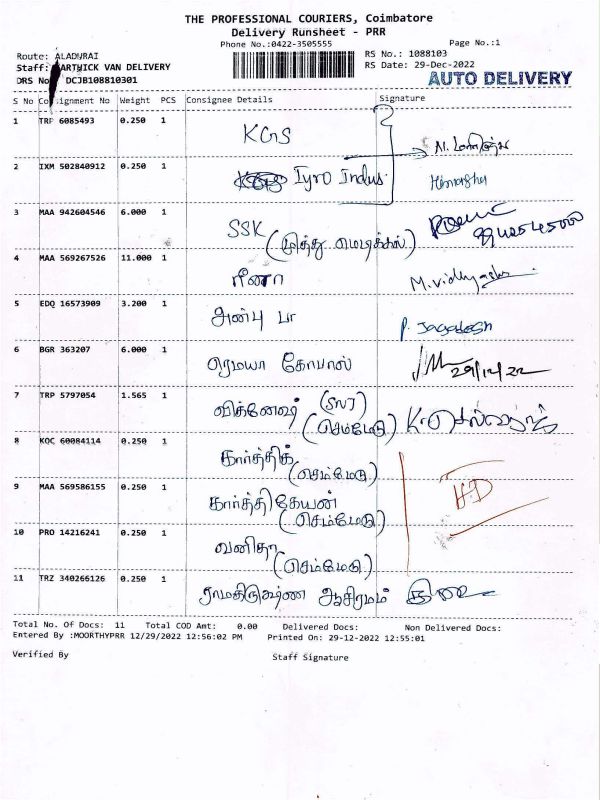 THE PROFESSIONAL COURIERS, Coimbatore
Delivery Runsheet - PRR
Phone No.:0422-3505555
Page No.:1
Route: ALADURAI
RS No.: 1088103
Staff: KARTHICK VAN DELIVERY
RS Date: 29-Dec-2022
DRS No DCJB108810301
AUTO DELIVERY
S No Consignment No Weight PCS Consignee Details Signature
1 TRP 6085493 0.250 1 KGS
2 IXM 502840912 0.250 1 Tyro Indus.
3 MAA 942604546 6.000 1 SSK (முத்து மெடிக்கல்)
4 MAA 569267526 11.000 1 ரீனா M.vidhya
5 EDQ 16573909 3.200 1 அன்பு பா P. Jagadesh
6 BGR 363207 6.000 1 ரெமயா கோபால் 29/12/22
7 TRP 5797054 1.565 1 விக்னேஷ் (செம்மேடு) K.செல்வராஜ்
8 KOC 60084114 0.250 1 கார்த்திக் (செம்மேடு)
9 MAA 569586155 0.250 1 கார்த்திகேயன் (செம்மேடு) H.D
10 PRO 14216241 0.250 1 வனிதா (செம்மேடு)
11 TRZ 340266126 0.250 1 ராமகிருஷ்ண ஆசிரமம்
Total No. Of Docs: 11 Total COD Amt: 0.00 Delivered Docs: Non Delivered Docs:
Entered By :MOORTHYPRR 12/29/2022 12:56:02 PM Printed On: 29-12-2022 12:55:01
Verified By Staff Signature